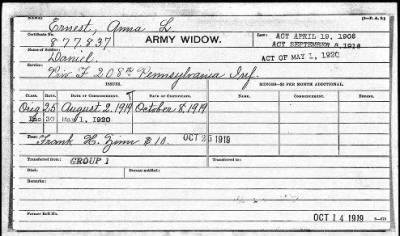 (3-P. A. S.)
NAME:
Ernest, Anna L.
Certificate No.
877.837
ARMY WIDOW.
Law:
ACT APRIL 19, 1908
ACT SEPTEMBER 8, 1916
ACT OF MAY 1, 1920
Name of Soldier:
Daniel.
Service:
Priv F 208th Pennsylvania Inf.
ISSUES.
MINORS—$2 PER MONTH ADDITIONAL.
CLASS.
RATE.
DATE OF COMMENCEMENT.
DATE OF CERTIFICATE.
Orig 25 August 2, 1919 October 8, 1919
Inc 30 May 1, 1920
Fees:
Frank H. $10.
OCT 25 1919
Transferred from:
GROUP 1
Died:
Remarks:
Former Roll No.
OCT 14 1919